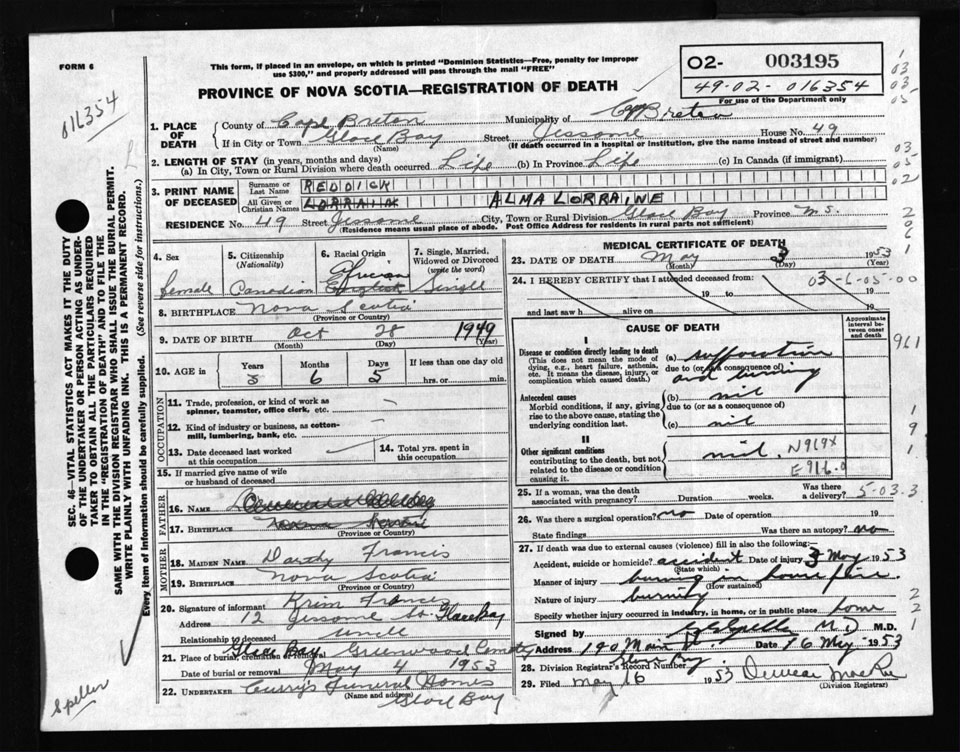 FORM 6
This form, if placed in an envelope, on which is printed "Dominion Statistics—Free, penalty for improper
use $300," and properly addressed will pass through the mail "FREE"
O2- 003195
49-02-016354
For use of the Department only
PROVINCE OF NOVA SCOTIA—REGISTRATION OF DEATH
016354
1. PLACE OF DEATH
County of Cape Breton
Municipality of C Breton
If in City or Town Glace Bay (Name) Street Jessome House No. 49
(If death occurred in a hospital or institution, give the name instead of street and number)
2. LENGTH OF STAY (in years, months and days)
(a) In City, Town or Rural Division where death occurred Life (b) In Province Life (c) In Canada (if immigrant)
3. PRINT NAME OF DECEASED
Surname or Last Name REDDICK
All Given or Christian Names LORRAIN ALMA LORRAINE
RESIDENCE No. 49 Street Jessome City, Town or Rural Division Glace Bay Province N.S.
(Residence means usual place of abode. Post Office Address for residents in rural parts not sufficient)
4. Sex female
5. Citizenship (Nationality) Canadian
6. Racial Origin African English
7. Single, Married, Widowed or Divorced (write the word) Single
8. BIRTHPLACE Nova Scotia
(Province or Country)
9. DATE OF BIRTH Oct 28 1949
(Month) (Day) (Year)
10. AGE in Years 3 Months 6 Days 5 If less than one day old hrs. or min.
OCCUPATION
11. Trade, profession, or kind of work as spinner, teamster, office clerk, etc.
12. Kind of industry or business, as cotton-mill, lumbering, bank, etc.
13. Date deceased last worked at this occupation
14. Total yrs. spent in this occupation
15. If married give name of wife or husband of deceased
FATHER
16. NAME
17. BIRTHPLACE
(Province or Country)
MOTHER
18. MAIDEN NAME Francis
19. BIRTHPLACE Nova Scotia
(Province or Country)
20. Signature of informant Francis
Address 12 Jessome St. Glace Bay
Relationship to deceased uncle
21. Place of burial, cremation or removal Glace Bay Greenwood Cemetery
Date of burial or removal May 4 1953
22. UNDERTAKER Curry's Funeral Homes
(Name and address)
Glace Bay
MEDICAL CERTIFICATE OF DEATH
23. DATE OF DEATH May 3 1953
(Month) (Day) (Year)
24. I HEREBY CERTIFY that I attended deceased from:
03-6-05-00
19 to 19
and last saw h alive on 19
CAUSE OF DEATH
Approximate interval between onset and death
I
Disease or condition directly leading to death
(This does not mean the mode of dying, e.g., heart failure, asthenia, etc. It means the disease, injury, or complication which caused death.)
(a) suffocation
due to (or as a consequence of)
and burning
Antecedent causes
Morbid conditions, if any, giving rise to the above cause, stating the underlying condition last.
(b) nil
due to (or as a consequence of)
(c) nil
II
Other significant conditions
contributing to the death, but not related to the disease or condition causing it.
nil. N969X
E916.0
25. If a woman, was the death associated with pregnancy? Duration weeks. Was there a delivery?
5-03.3
26. Was there a surgical operation? no Date of operation 19
State findings Was there an autopsy? no
27. If death was due to external causes (violence) fill in also the following:—
Accident, suicide or homicide? accident Date of injury 3 May 1953
(State which)
Manner of injury burning in home fire.
(How sustained)
Nature of injury burning
Specify whether injury occurred in industry, in home, or in public place home
Signed by M.D. M.D.
Address 190 Main St Glace Bay Date 16 May 1953
28. Division Registrar's Record Number
29. Filed May 16 1953
(Division Registrar)
SEC. 46—VITAL STATISTICS ACT MAKES IT THE DUTY
OF THE UNDERTAKER OR PERSON ACTING AS UNDER-
TAKER TO OBTAIN ALL THE PARTICULARS REQUIRED
IN THE "REGISTRATION OF DEATH" AND TO FILE THE
SAME WITH THE DIVISION REGISTRAR WHO SHALL ISSUE THE BURIAL PERMIT.
WRITE PLAINLY WITH UNFADING INK. THIS IS A PERMANENT RECORD.
Every item of information should be carefully supplied. (See reverse side for instructions.)
961